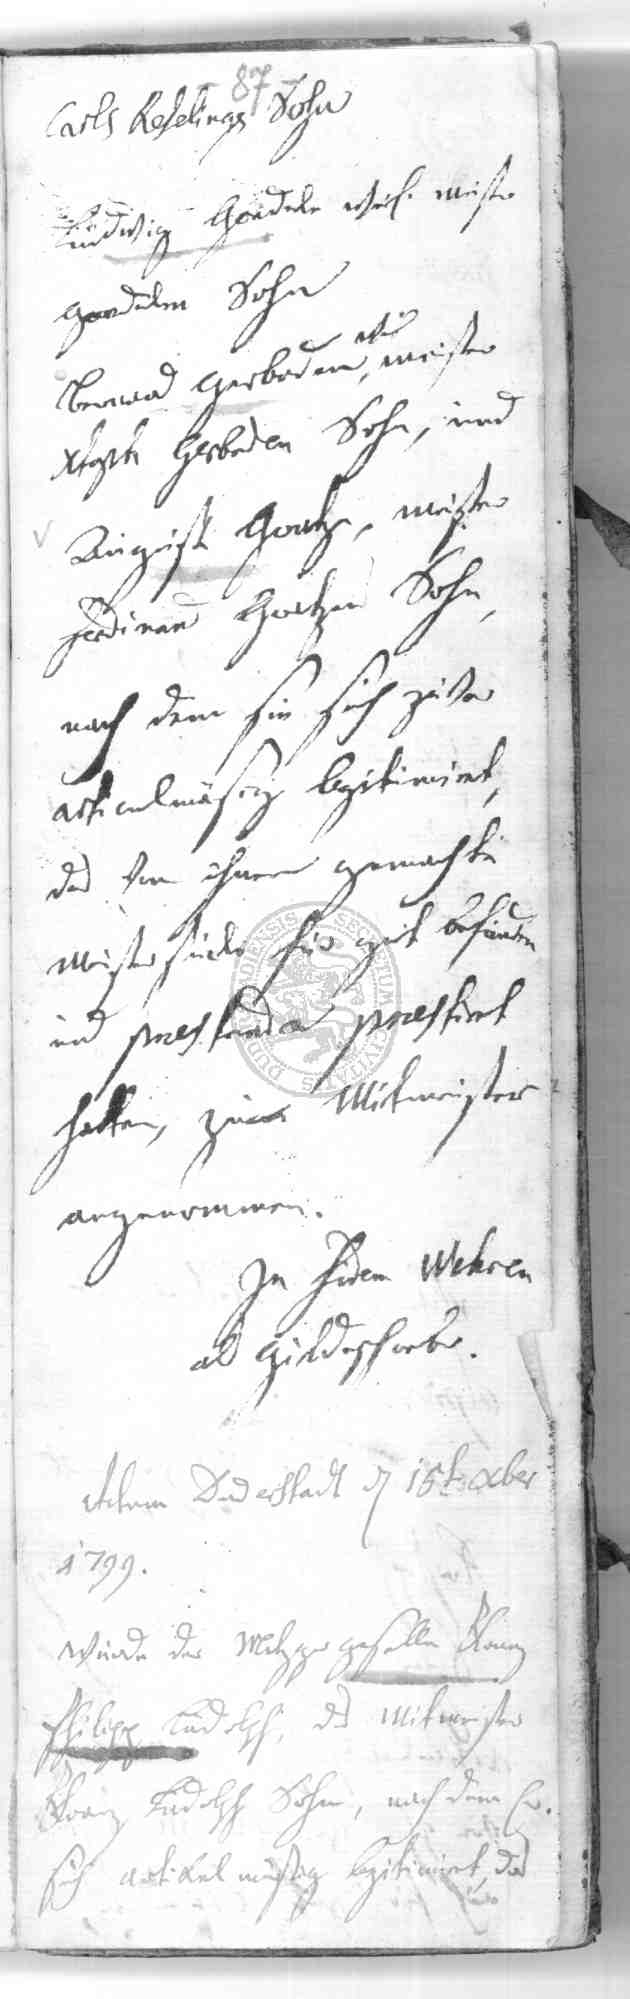 - 87 -
Carls Keselings Sohn
Ludwig Goedeke weis. meister
goedeken Sohn
Bernard Gerboden, meister
Gerboden Sohn, und
August Goetze, meister
Ferdinand Goetzen Sohn,
nach dem sie sich zuvor
articulmäsig legitimiret,
das von ihnen gemachte
Meisterstücke für gut befunden
und praestanda praestiret
hatten, zum Mitmeister
angenommen.
In fidem Wehren
als Gildeschreiber.
Actum Duderstadt d 15t xber
1799.
wurde der Metzgergeselle Franz
Philipp Rudolph, des Mitmeister
Franz Rudolph Sohn, nach dem Er
sich artikelmäsig legitimiret, das
SECRETUM CIVITATIS DUDERSTADIENSIS